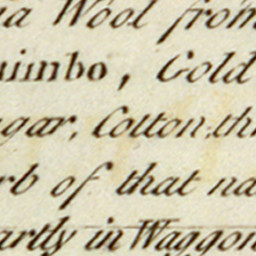 a Wool from
uimbo, Gold
gar, Cotton, th
rb of that na
artly in Waggon